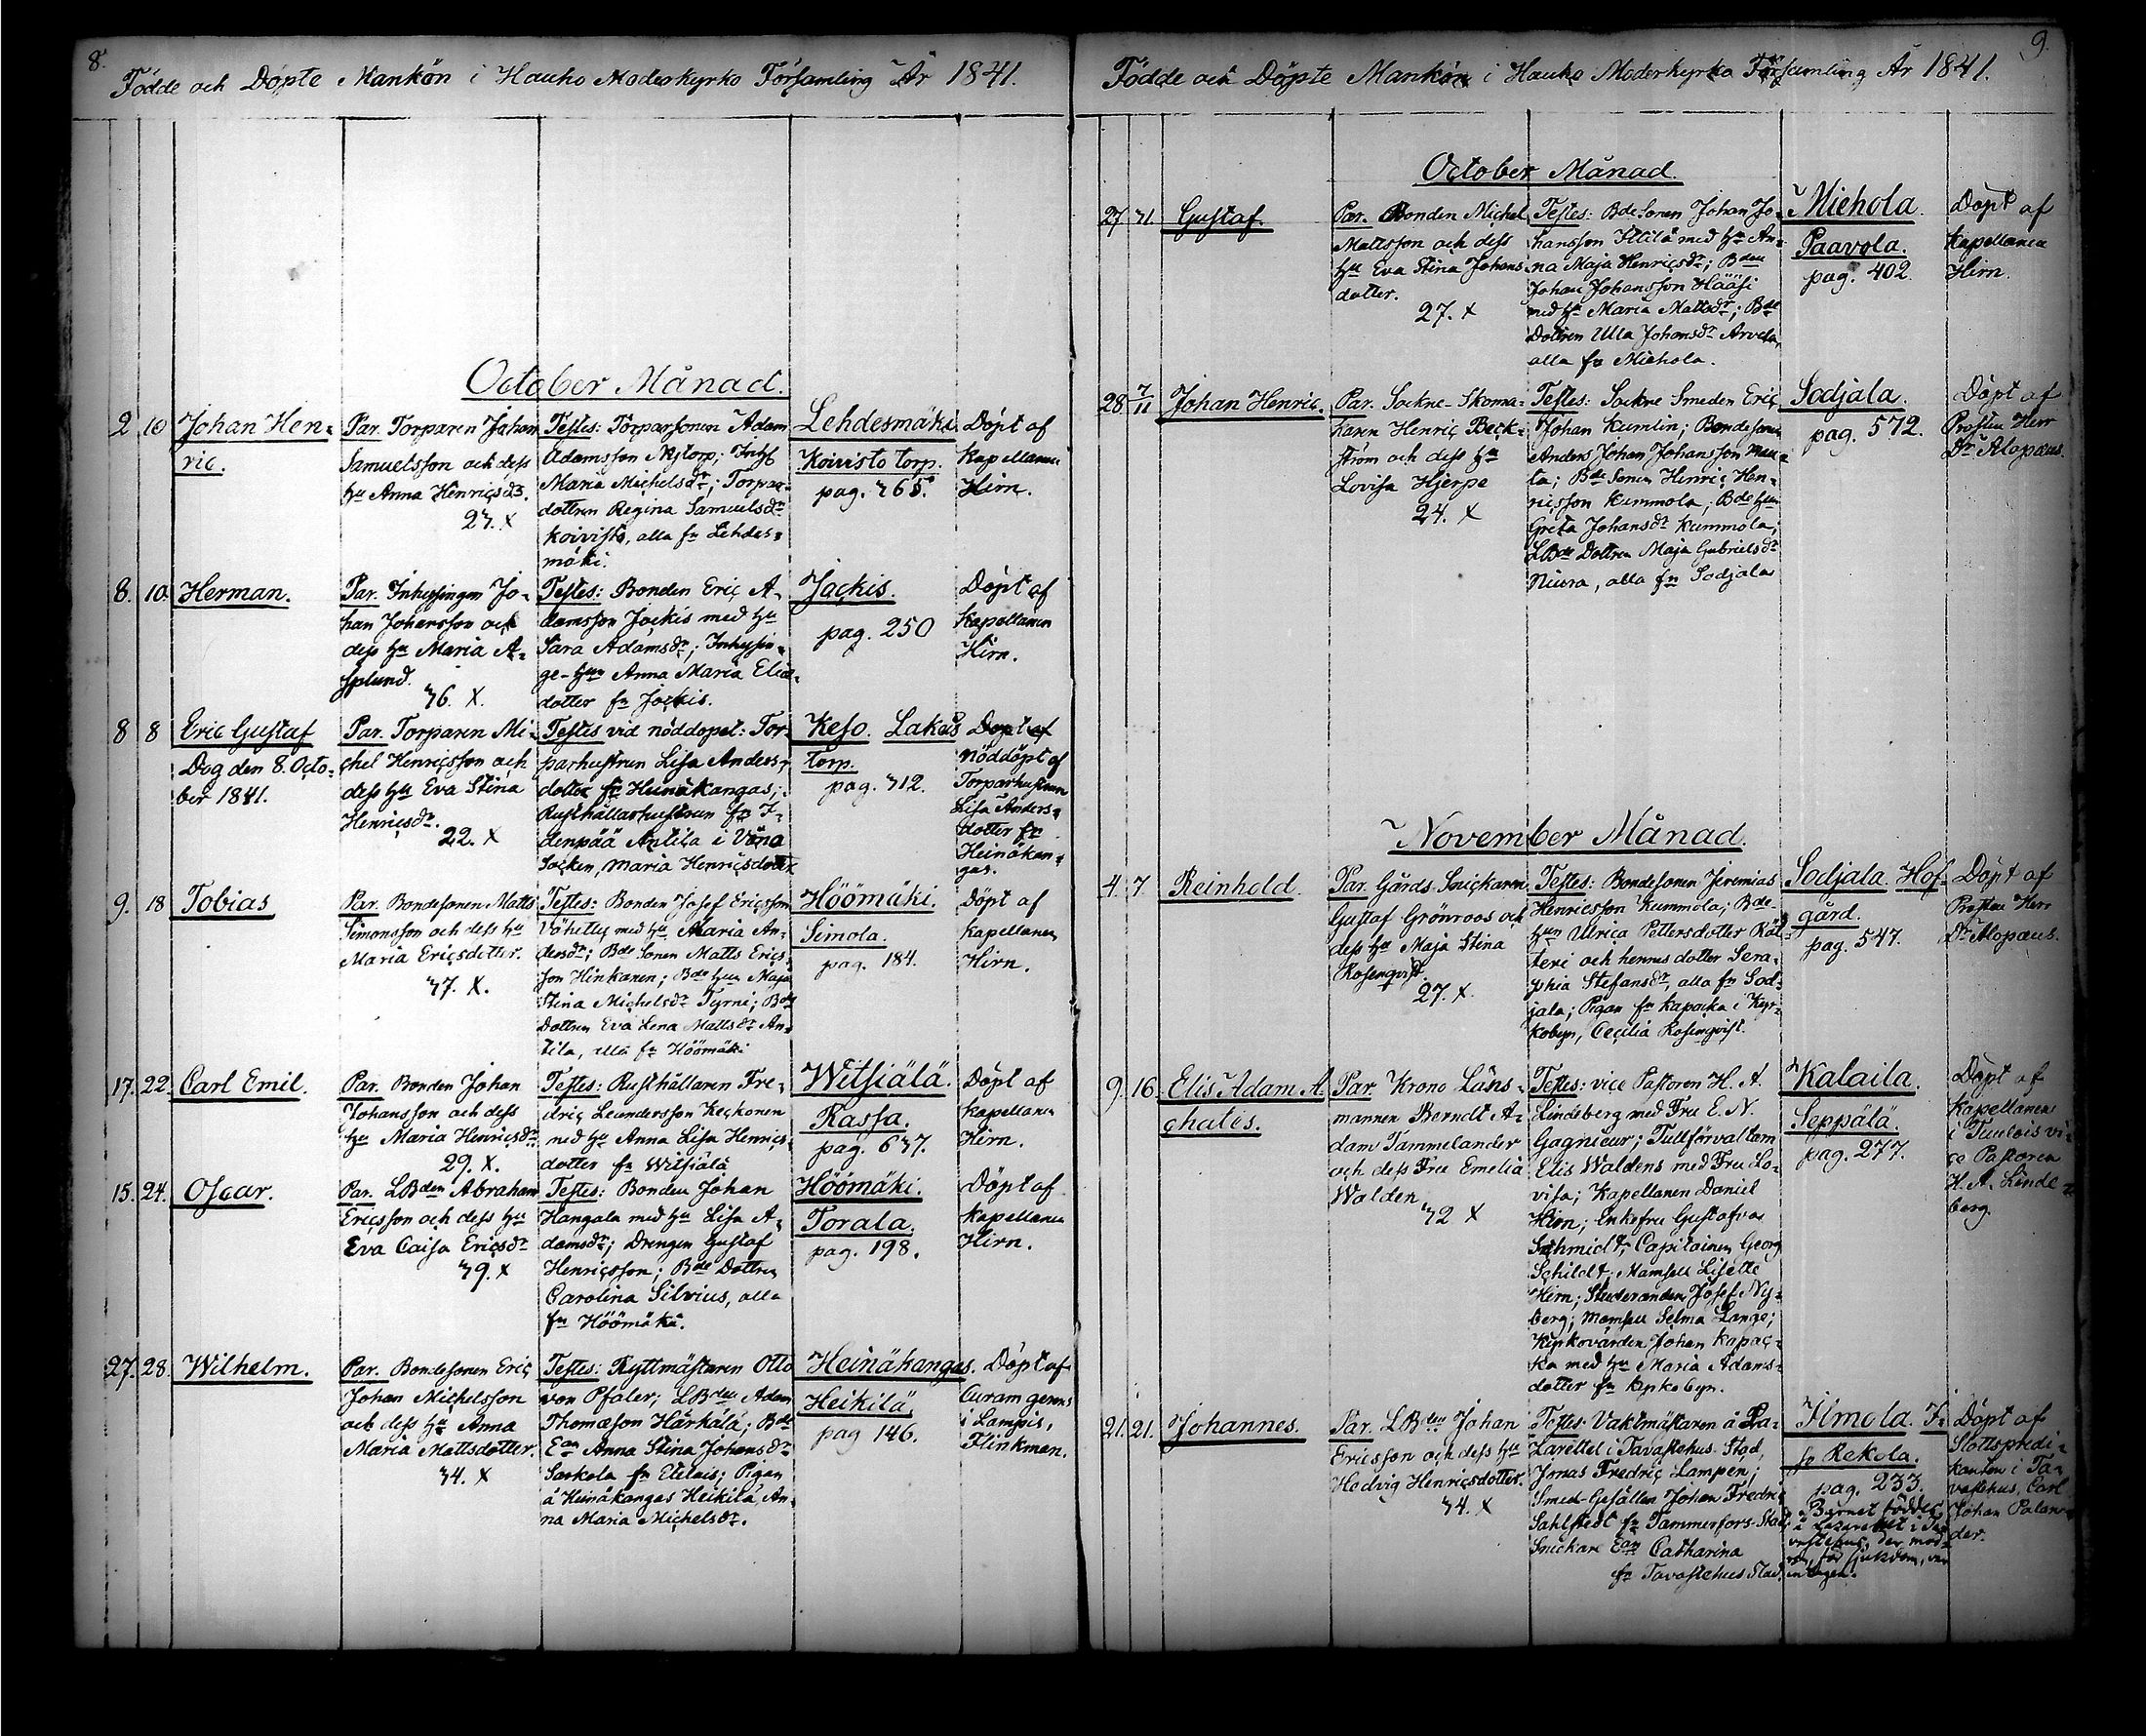 8.
Födde och Döpte Mankön i Hauho Moderkyrko Församling År 1841.
October Månad.
2 10 Johan Hen-
ric.
Par. Torparen Johan
Samuelsson och dess
hu Anna Henricsdr.
27. X
Testes: Torparsonen Adam
Adamsson Nytorp; Inhys
Maria Michelsdr; Torpar-
dottren Regina Samuelsdr
Koivisto, alla fr Lehdes-
mäki.
Lehdesmäki.
Koivisto torp.
pag. 765.
Döpt af
Kapellanen
Hirn.
8. 10. Herman.
Par. Inhysingen Jo-
han Johansson och
dess hu Maria A-
splund.
46. X.
Testes: Bonden Eric A-
damsson Jackis med hu
Sara Adamsdr; Inhysin-
ge-hun Anna Maria Elias-
dotter fr Jackis.
Jackis.
pag. 250
Döpt af
Kapellanen
Hirn.
8 8 Eric Gustaf
Dog den 8. Octo-
ber 1841.
Par. Torparen Mi-
chel Henricsson och
dess hu Eva Stina
Henricsdr.
22. X
Testes vid nöddopet: Tor-
parhustrun Lisa Anders-
dotter fr Heinäkangas;
Rusthållarhustrun fr I-
denpää Antila i Vånå
Socken, Maria Henricsdotter
Keso. Lakais
torp.
pag. 312.
Döpt af
nöddöpt af
Torparhustrun
Lisa Anders-
dotter fr
Heinäkan-
gas.
9. 18 Tobias
Par. Bondesonen Matts
Simonsson och dess hu
Maria Ericsdotter.
47. X.
Testes: Bonden Josef Ericsson
med hu Maria An-
dersdr; Bde Sonen Matts Erics-
son Hinkanen; Bde hun Maja
Stina Michelsdr Tyrni; Bde
Dottren Eva Lena Mattsdr An-
tila, alla fr Höömäki
Höömäki.
Simola.
pag. 184.
Döpt af
Kapellanen
Hirn.
17. 22. Carl Emil.
Par. Bonden Johan
Johansson och dess
hu Maria Henricsdr.
29. X.
Testes: Rusthållaren Fre-
dric Leandersson Keckonen
med hu Anna Lisa Henrics-
dotter fr Witsiälä
Witsiälä.
Rassa.
pag. 637.
Döpt af
Kapellanen
Hirn.
15. 24. Oscar.
Par. LBden Abraham
Ericsson och dess hu
Eva Caisa Ericsdr
39. X
Testes: Bonden Johan
Hangala med hu Lisa A-
damsdr; Drengen Gustaf
Henricsson; Bde Dottren
Carolina Silvius, alla
fr Höömäki.
Höömäki.
Torala.
pag. 198.
Döpt af
Kapellanen
Hirn.
27. 28. Wilhelm.
Par. Bondesonen Eric
Johan Michelsson
och dess hu Anna
Maria Mattsdotter.
34. X
Testes: Ryttmästaren Otto
von Pfaler; LBden Adam
Thomæson Härkälä; Bde
Ean Anna Stina Johansdr
Sackola fr Etelais; Pigan
å Heinäkangas Heikilä An-
na Maria Michelsdr.
Heinäkangas.
Heikilä.
pag 146.
Döpt af
Curam gerens
i Lampis,
Flinkman.
9.
Födde och Döpte Mankön i Hauho Moderkyrko Församling År 1841.
October Månad.
27 31 Gustaf.
Par. Bonden Michel
Mattsson och dess
hu Eva Stina Johans-
dotter.
27. X
Testes: Bde Sonen Johan Jo-
hansson Ittilä med hu An-
na Maja Henricsdr; Bden
Johan Johansson Hääsi
med hu Maria Mattsdr; Bde
Dottren Ulla Johansdr Arvela,
alla fr Miehola.
Miehola.
Paavola.
pag. 402.
Döpt af
Kapellanen
Hirn.
28 7/11 Johan Henric.
Par. Sockne-Skoma-
karen Henric Beck-
ström och dess hu
Lovisa Hjerpe
24. X
Testes: Sockne Smeden Eric
Johan Kumlin; Bondesonen
Anders Johan Johansson Mau-
la; Bde Sonen Henric Hen-
ricsson Kummola; Bde hun
Greta Johansdr Kummola;
LBde Dottren Maja Gabrielsdr
Niura, alla fr Sodjala
Sodjala.
pag. 572.
Döpt af
Prosten Herr
Dr Alopæus.
November Månad.
4. 7. Reinhold.
Par. Gårds Snickaren
Gustaf Grönroos och
dess hu Maja Stina
Rosenqvist.
27. X.
Testes: Bondesonen Jeremias
Henricsson Kummola; Bde-
hun Ulrica Pettersdotter Rät-
teri och hennes dotter Sera-
phia Stefansdr, alla fr Sod-
jala; Pigan fr Kapacka i Kyr-
kobyn, Cecilia Rosenqvist.
Sodjala Hof-
gård.
pag. 547.
Döpt af
Prosten Herr
Dr Alopæus.
9. 16. Elis Adam A-
chates.
Par Krono Läns-
mannen Berndt A-
dam Tammelander
och dess Fru Emelia
Walden
32 X
Testes: vice Pastoren H. A.
Lindeberg med Fru E. N.
Gagnieur; Tullförvaltarn
Elis Waldens med Fru Lo-
visa; Kapellanen Daniel
Hirn; Enkefru Gustafva
Schmidt; Capitainen Georg
Schildt; Mamsell Lisette
Hirn; Studeranden Josef Ny-
berg; Mamsell Selma Lange;
Kyrkovärden Johan Kapac-
ka med hu Maria Adams-
dotter fr Kyrkobyn.
Kalaila.
Seppälä.
pag. 277.
Döpt af
Kapellanen
i Tuulois vi-
ce Pastoren
H. A. Linde-
berg.
21. 21. Johannes.
Par. LBden Johan
Ericsson och dess hu
Hedvig Henricsdotter.
34. X
Testes: Vaktmästaren å La-
zarettet i Tavastehus Stad,
Jonas Fredric Lampen;
Smed-Gesällen Johan Fredric
Sahlstedt fr Tammerfors Stad
Snickare Ean Catharina
fr Tavastehus Stad.
Ilmola.
fr Rekola.
pag. 233.
Barnet föddes
å Lazarettet i Ta-
vastehus, der mod-
ren, för sjukdom, var
intagen.
Döpt af
Slottspredi-
kanten i Ta-
vastehus, Carl
Johan Palan-
der.